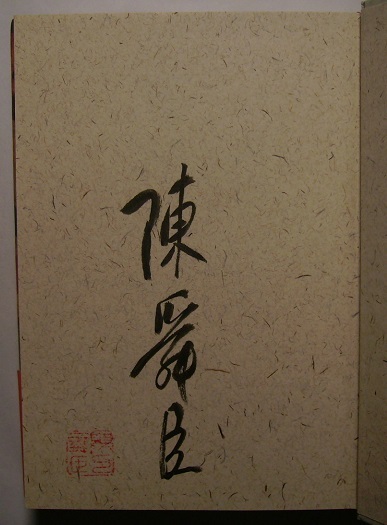 陳舜臣